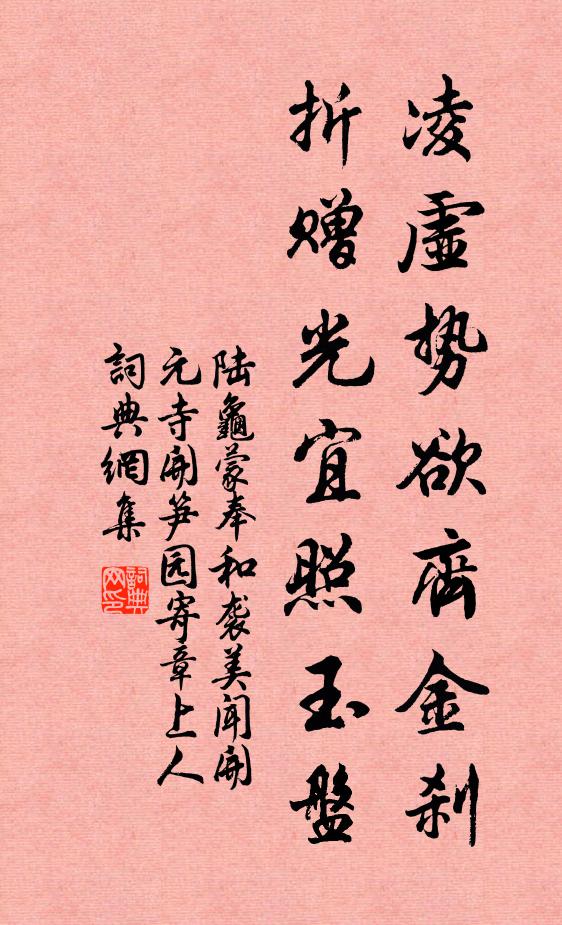 凌虛勢欲齊金刹
折贈光宜照玉盤
陆龜蒙奉和袭美闻開
元寺開笋园寄章上人
詞典網集
詞典
网印